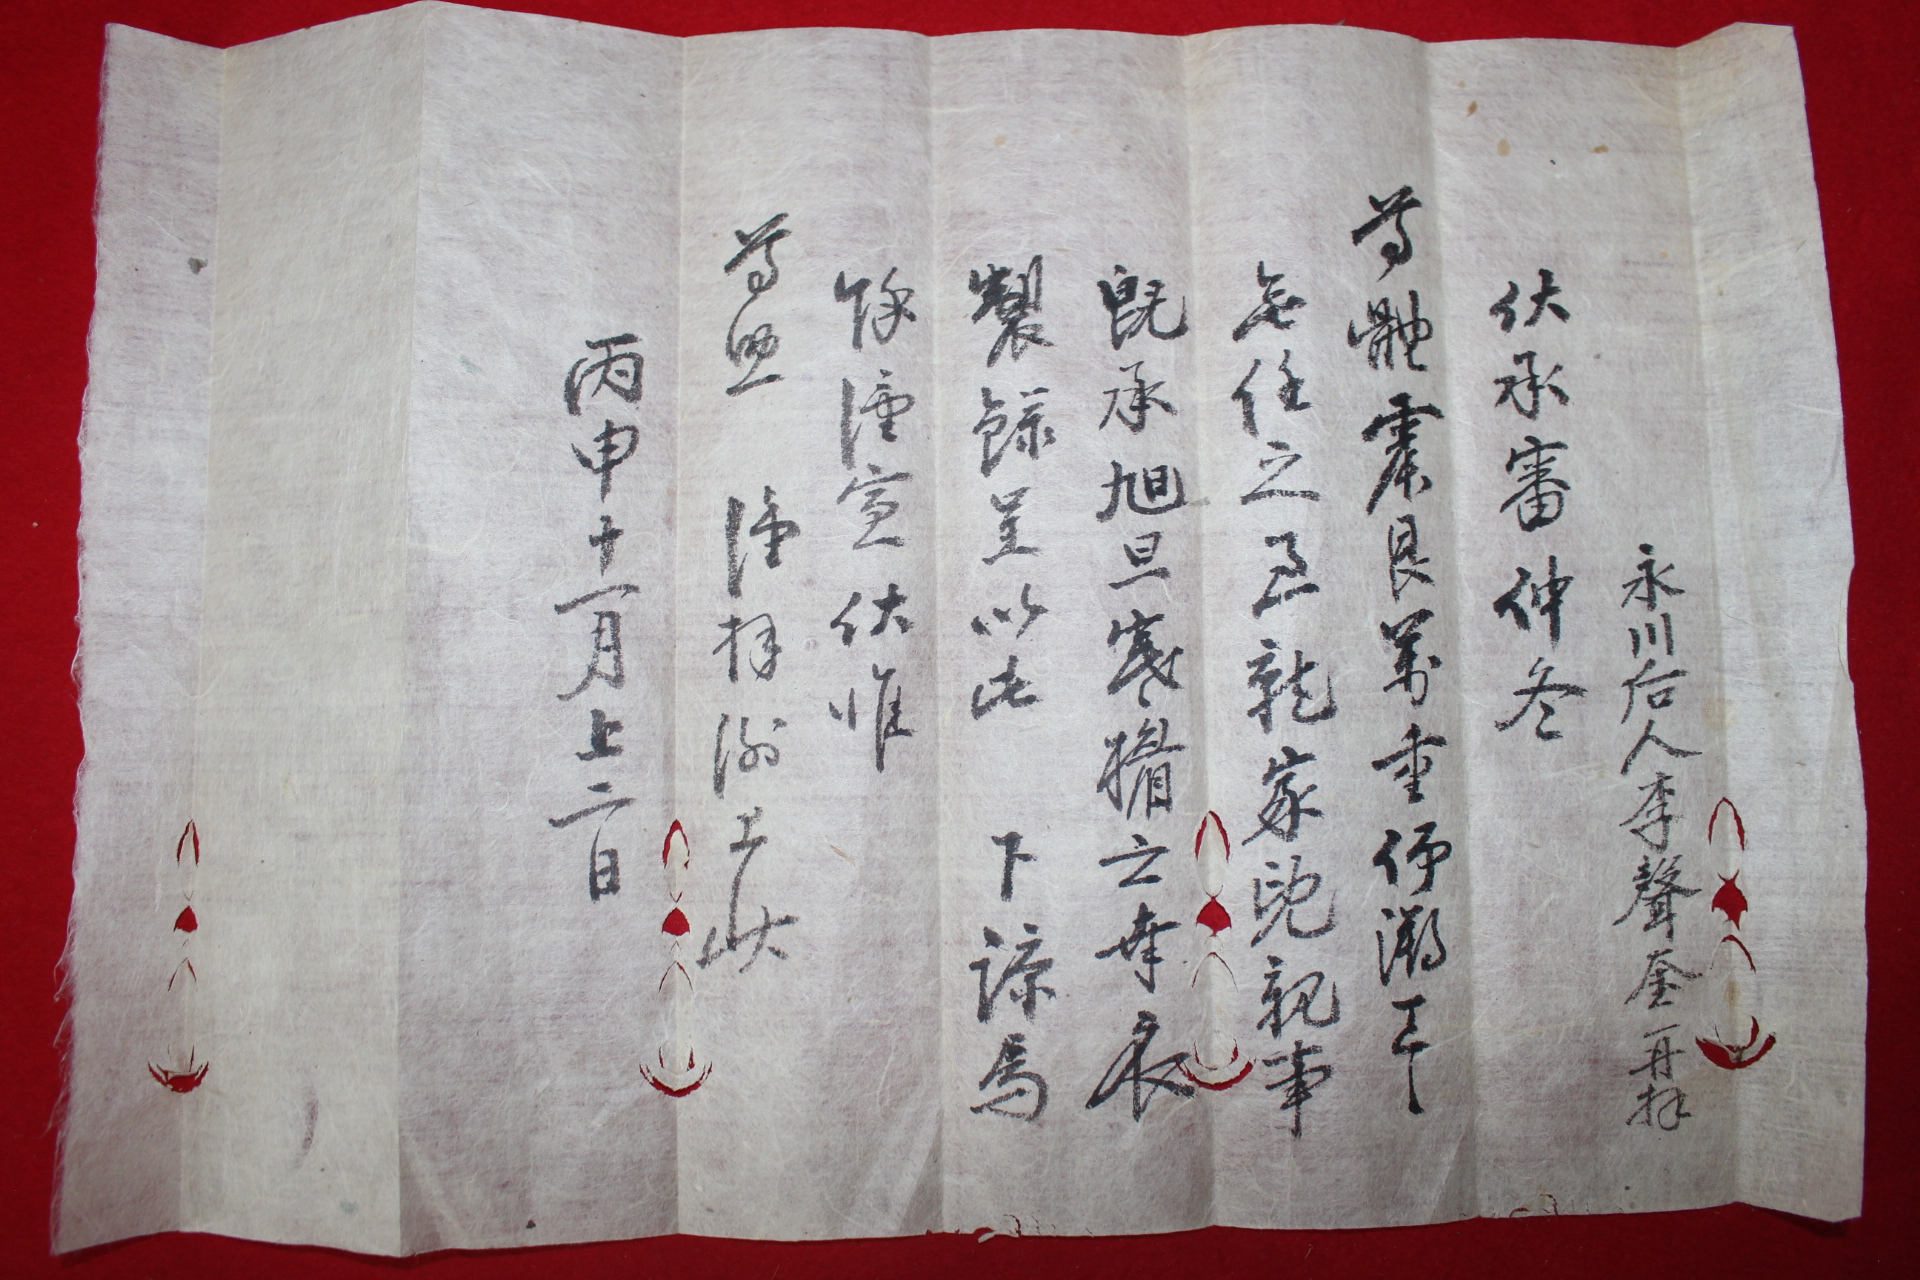 永川后人李聲奎再拜
伏承審仲冬
尊體震艮萬重仰溯區區
無任之至就家兒親事
旣承旭旦寒擯之幸衣
製錄呈以此 下諒焉
餘謹宣伏惟
尊照 謹拜謝上狀
丙申十一月上二日